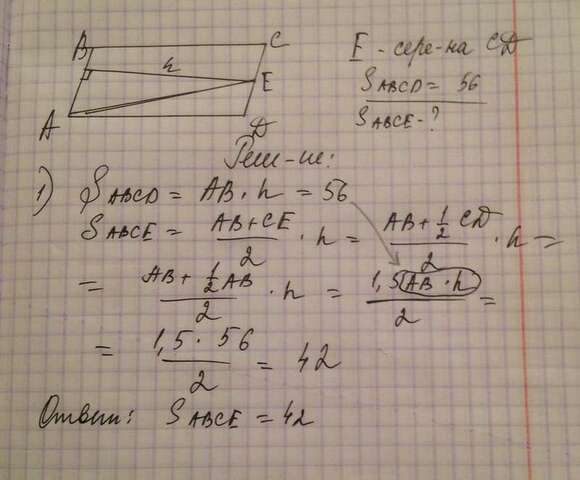 B C
h
E
A D
E - сере-на CD
SABCD = 56
SABCE - ?
Реш-ие:
1) SABCD = AB · h = 56
SABCE = (AB + CE)/2 · h = (AB + 1/2 CD)/2 · h =
= (AB + 1/2 AB)/2 · h = (1,5 AB · h)/2 =
= (1,5 · 56)/2 = 42
Ответ: SABCE = 42